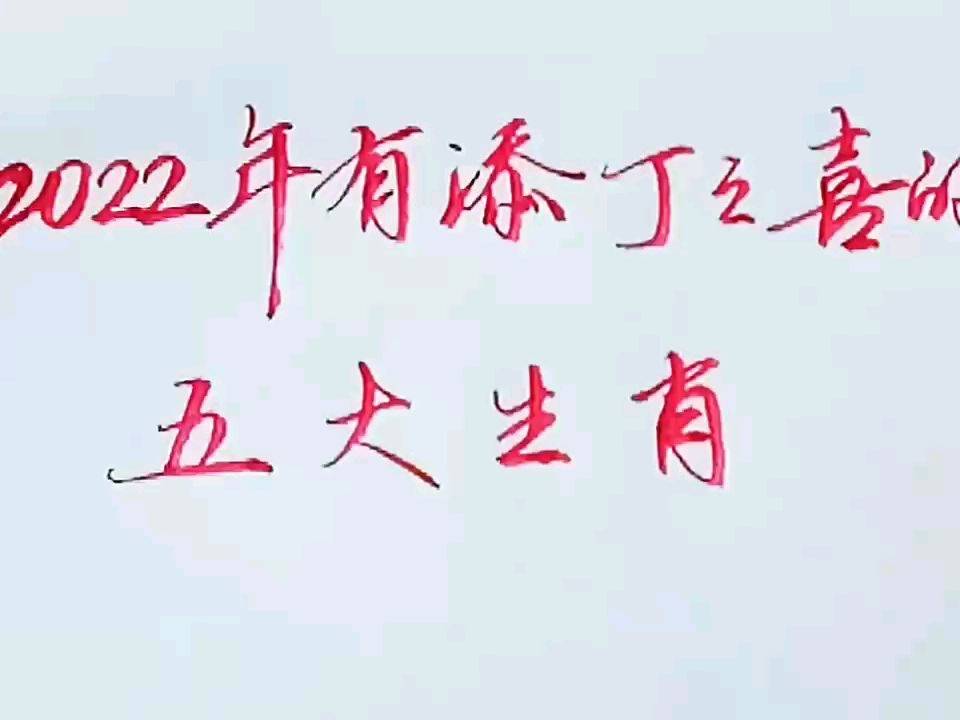 2022年有添丁之喜的
五大生肖